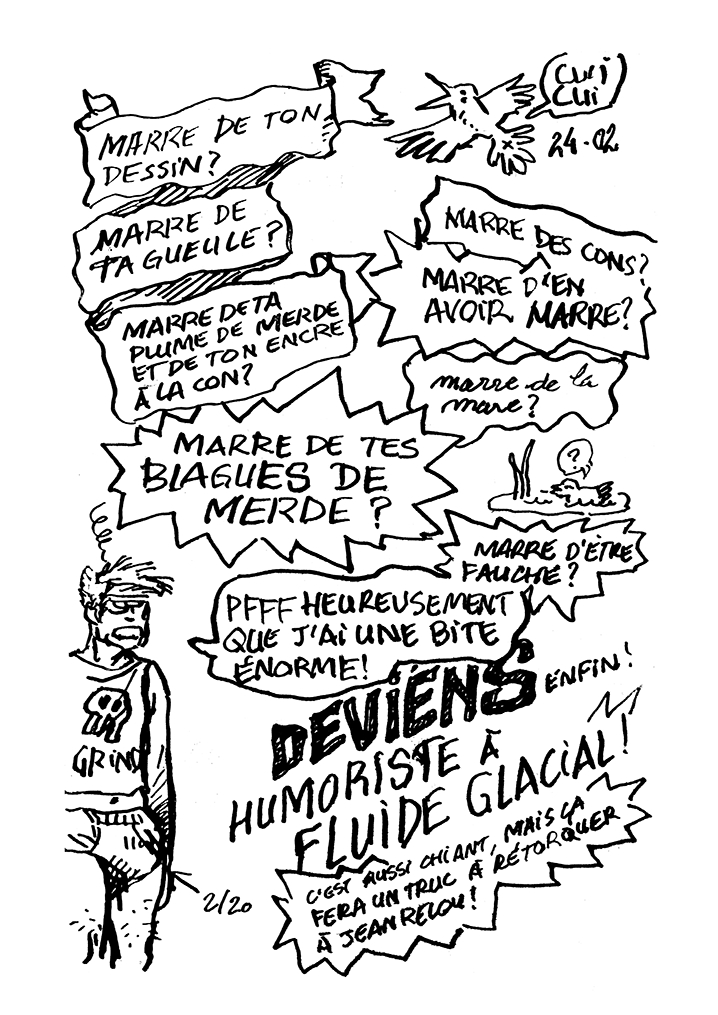 MARRE DE TON
DESSIN?
CUI
CUI
24-02
MARRE DE
TA GUEULE?
MARRE DES CONS?
MARRE DE TA
PLUME DE MERDE
ET DE TON ENCRE
À LA CON?
MARRE D'EN
AVOIR MARRE?
marre de la
mare?
MARRE DE TES
BLAGUES DE
MERDE?
?
MARRE D'ÊTRE
FAUCHÉ?
PFFF HEUREUSEMENT
QUE J'AI UNE BITE
ÉNORME!
DEVIENS ENFIN!
HUMORISTE À
FLUIDE GLACIAL!
GRIND
C'EST AUSSI CHIANT, MAIS ÇA
FERA UN TRUC À RÉTORQUER
À JEAN RELOU!
2/20